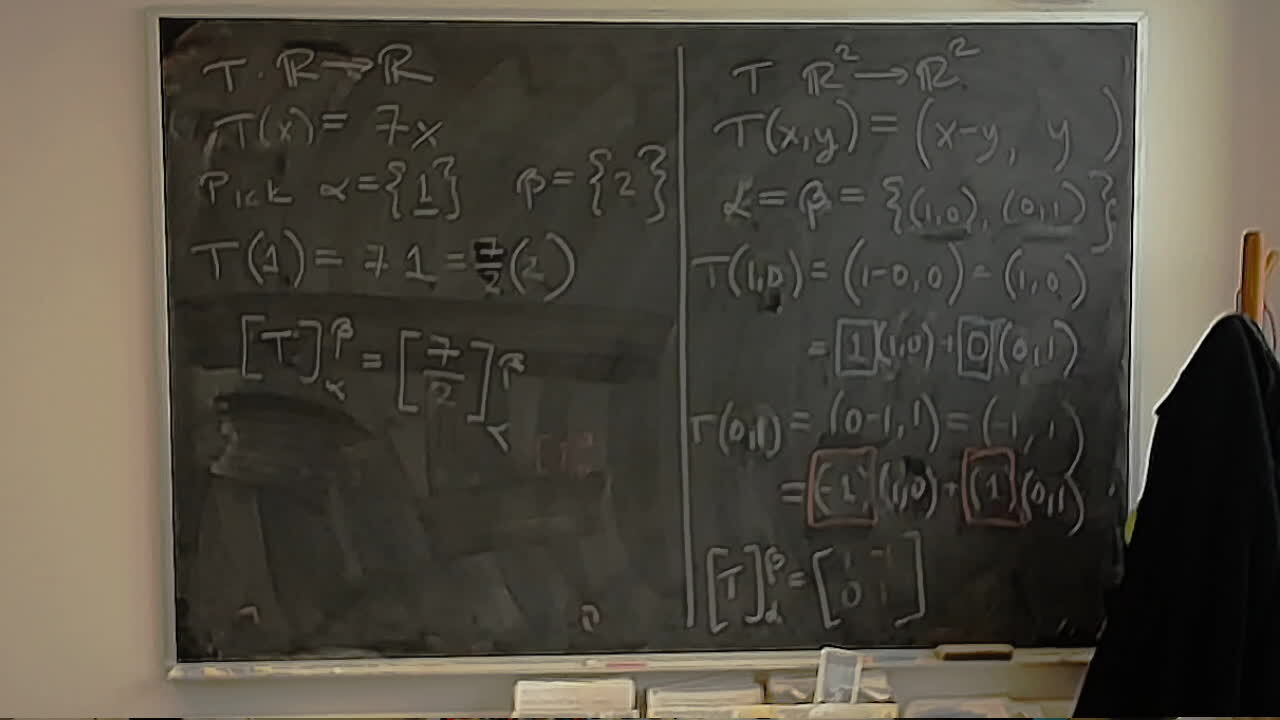 T . ℝ → ℝ
T(x) = 7x
Pick α = {1} β = {2}
T(1) = 7 1 = 7/2 (2)
[T]_α^β = [7/2]_α^β
T ℝ² → ℝ²
T(x,y) = (x-y, y)
α = β = {(1,0), (0,1)}
T(1,0) = (1-0,0) = (1,0)
= 1(1,0) + 0(0,1)
T(0,1) = (0-1,1) = (-1,1)
= (-1)(1,0) + (1)(0,1)
[T]_α^β = [1 -1
0 1]